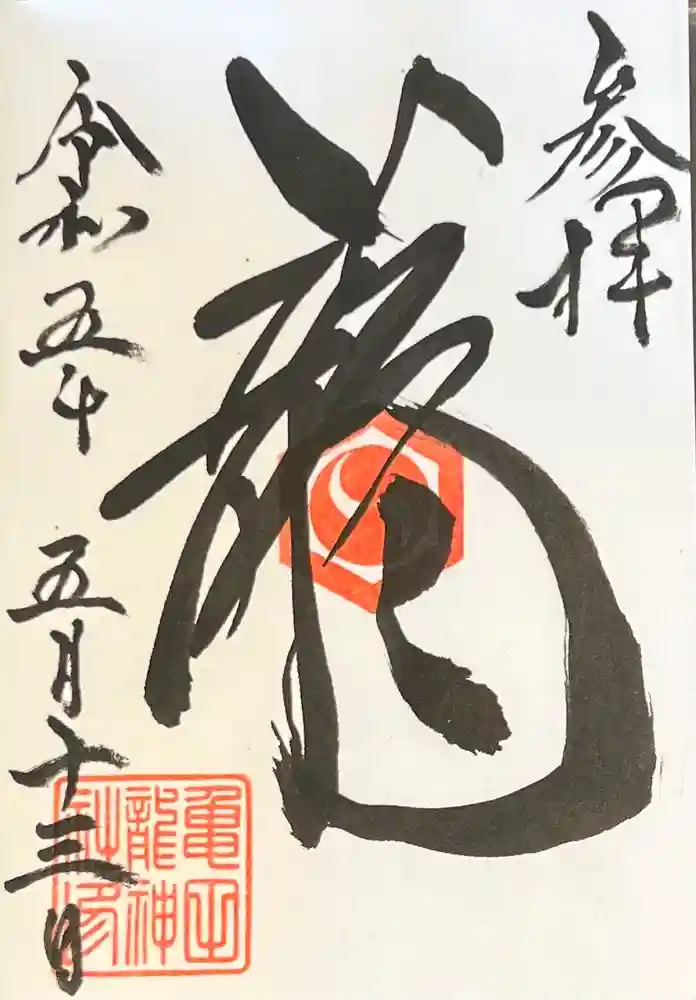 参拝
龍
令和五年 五月十三日
亀田
龍神
社